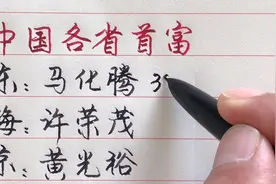 中国各省首富
东：马化腾 3
海：许荣茂
京：黄光裕